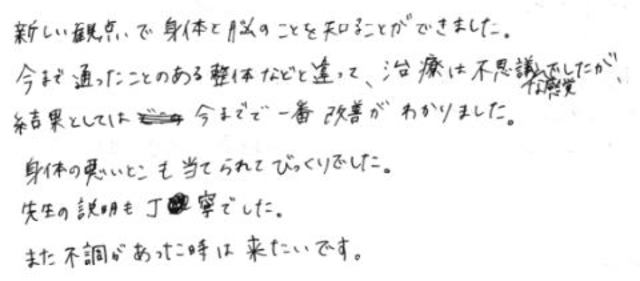 新しい観点で身体と脳のことを知ることができました。
今まで通ったことのある整体などと違って、治療は不思議な感覚でしたが、
結果としては今までで一番改善がわかりました。
身体の悪いとこも当てられてびっくりでした。
先生の説明も丁寧でした。
また不調があった時は来たいです。